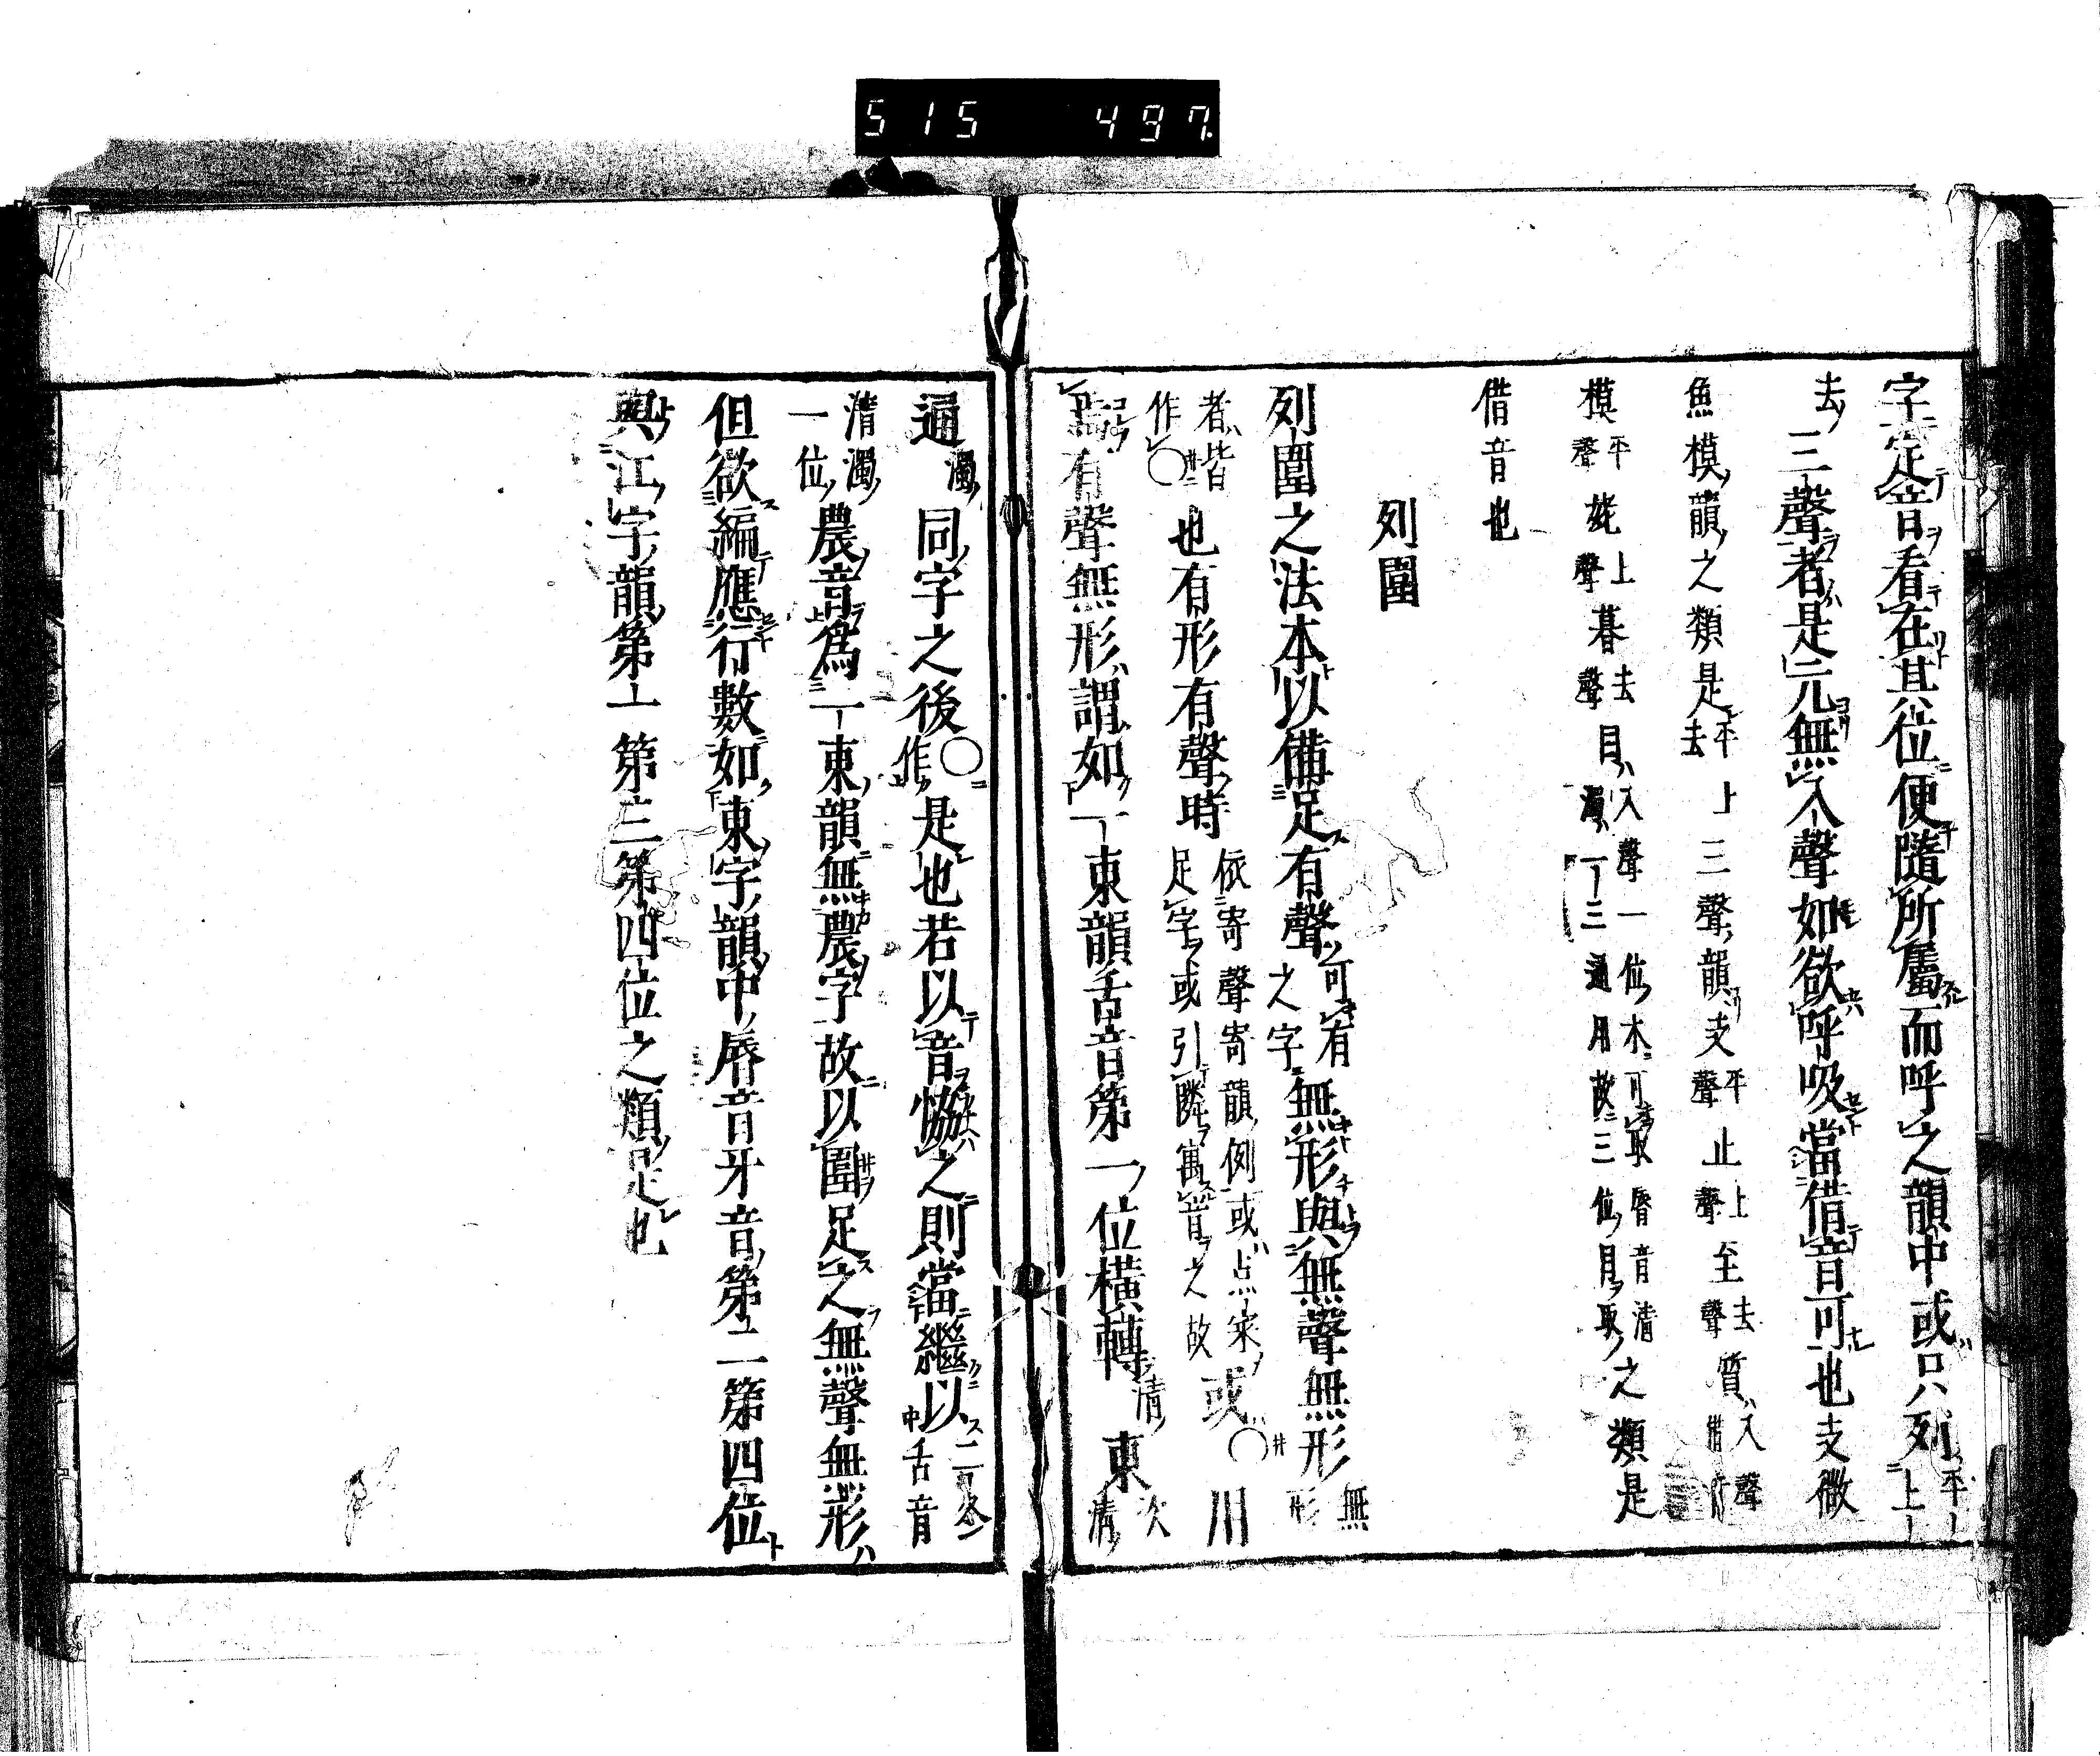 515 497
字定音看在其位便隨所屬而呼之韻中或只列平上
去三聲者是元無入聲如欲呼吸當借音可也支微
魚模韻之類是平上去三聲韻支平聲止上聲至去聲質入聲
模平聲姥上聲暮去聲目入聲一位木可取脣音清濁一三通用故三位目取之類是
借音也
列圍
列圍之法本以備足有聲可有之字無形與無聲無形無形
者皆作〇也有形有聲時依寄聲寄韻例或点寀足字或引隣寓音之故或〇川
有聲無形謂如一東韻舌音第一位橫轉清東次清
通濁同字之後〇作是也若以音恊之則當繼以二冬中舌音
清濁一位農音爲一東韻無農字故以圍足之無聲無形
但欲編應行數如東字韻中脣音牙音第二第四位
與江字韻第一第三第四位之類是也